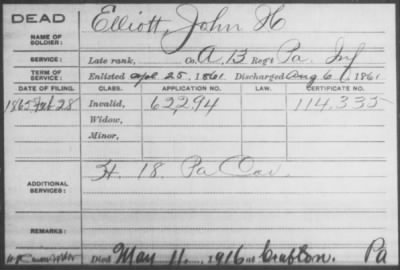 DEAD
Elliott, John H
NAME OF SOLDIER:
SERVICE: Late rank, Co. A. B. Reg't Pa. Inf
TERM OF SERVICE: Enlisted Apl. 25, 1861. Discharged Aug. 6, 1861.
DATE OF FILING. CLASS. APPLICATION NO. LAW. CERTIFICATE NO.
1865 Feb 28 Invalid, 62294 114,335
Widow,
Minor,
ADDITIONAL SERVICES: H. 18. Pa Cav.
REMARKS:
Died May 11, 1916 at Crafton. Pa